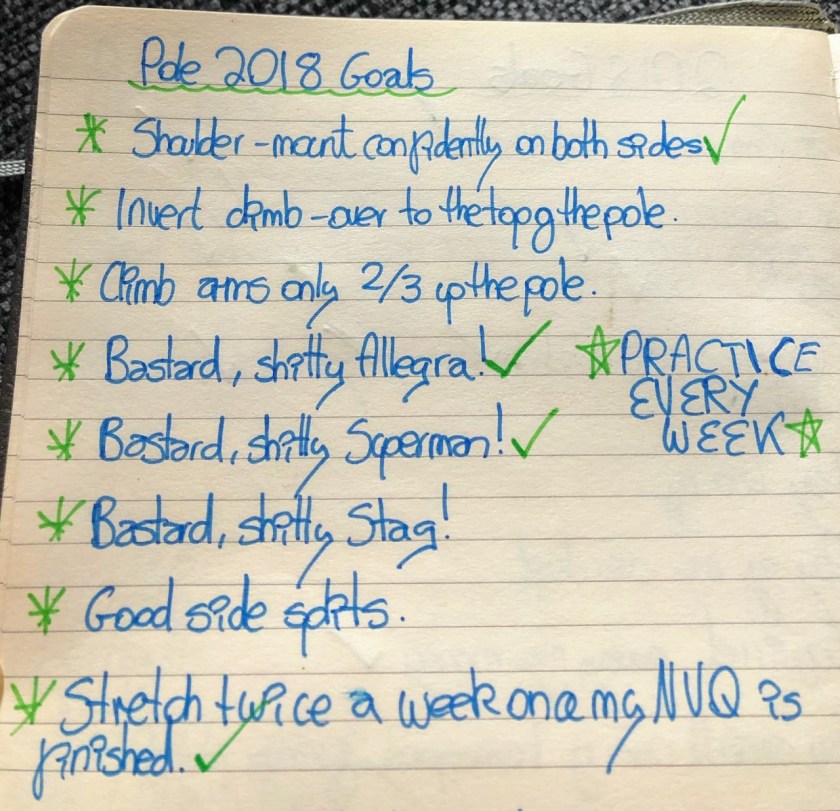 Pole 2018 Goals
* Shoulder-mount confidently on both sides ✓
* Invert climb-over to the top of the pole.
* Climb arms only 2/3 up the pole.
* Bastard, shitty Allegra! ✓
☆ PRACTICE
EVERY
WEEK ☆
* Bastard, shitty Superman! ✓
* Bastard, shitty Stag!
* Good side splits.
* Stretch twice a week once my NVQ is
finished. ✓